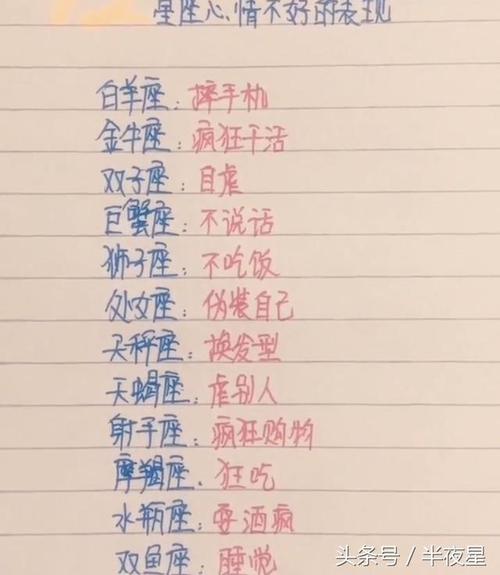 星座心情不好的表现
白羊座：摔手机
金牛座：疯狂干活
双子座：自虐
巨蟹座：不说话
狮子座：不吃饭
处女座：伪装自己
天秤座：换发型
天蝎座：虐别人
射手座：疯狂购物
摩羯座：狂吃
水瓶座：耍酒疯
双鱼座：睡觉
头条号／半夜星